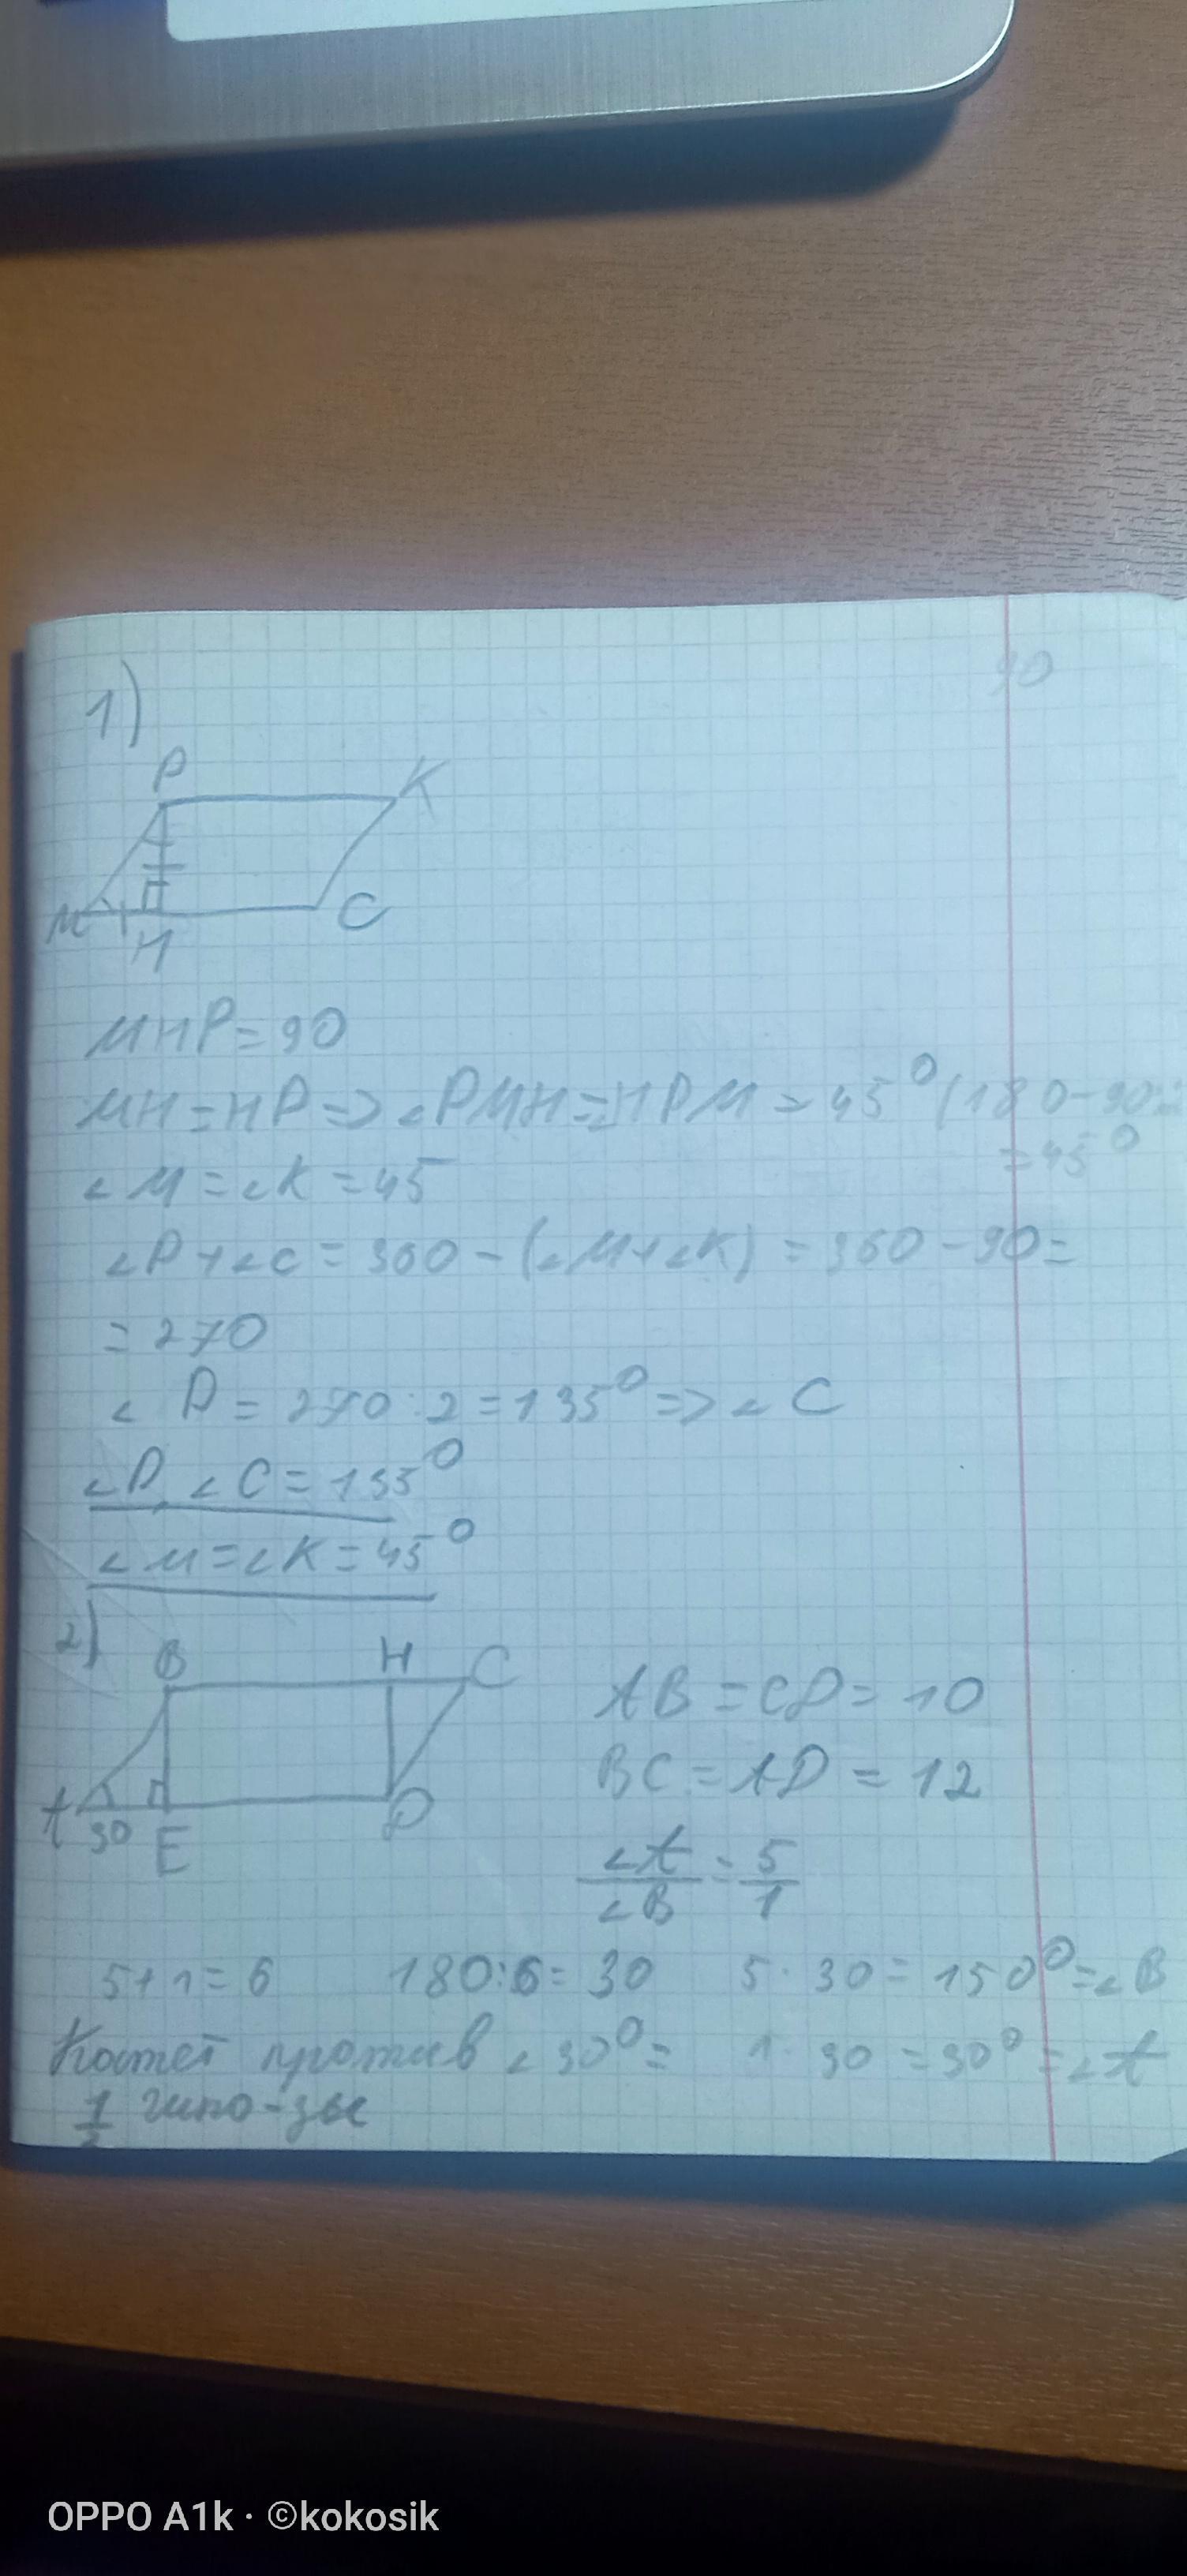 90
1)
P
K
M
H
C
MHP=90
MH=HP=>∠PMH=HPM=45° (180-90:
=45°
∠M=∠K=45
∠P+∠C=360-(∠M+∠K)=360-90=
=270
∠P=270:2=135°=>∠C
∠P, ∠C=135°
∠M=∠K=45°
2)
B
H
C
A
30
E
D
AB=CD=10
BC=AD=12
∠A/∠B=5/1
5+1=6 180:6=30 5·30=150°=∠B
Катет против ∠30°= 1·30=30°=∠A
1/2 гипо-зы
OPPO A1k · ©kokosik